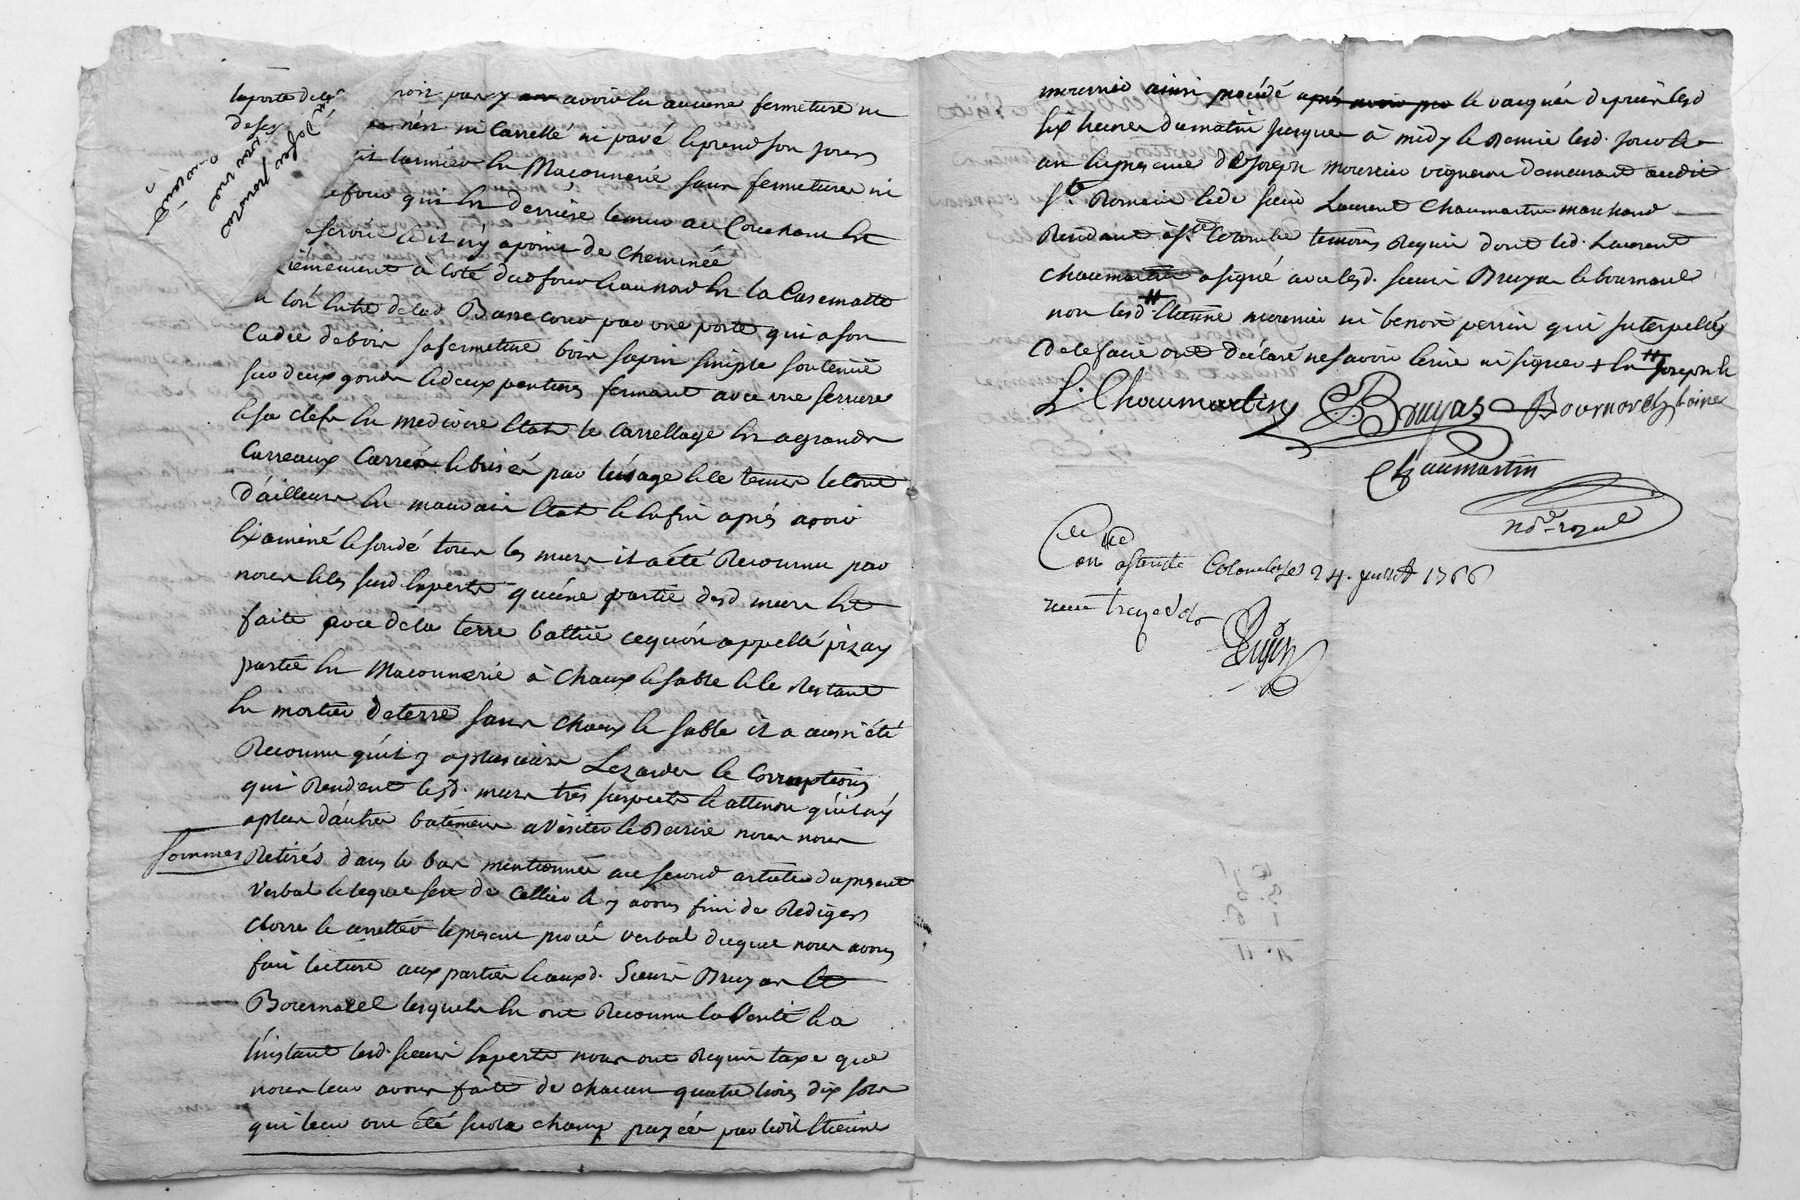 laporte de
avoir eu aucune fermeture ni
n'est ni Carrellé ni pavé le prend son jour
en Maçonnerie sans fermeture ni
four qui est derrière le mur au Couchant est
il n'y a point de Cheminée
à Coté dud four et au nord est la Casematte
l'on entre delad Basse cour par une porte qui a son
Cadre de bois sa fermeture bois sapin simple soutenüe
sur deux gonds et deux pentures fermant avec une serrure
et sa clef en mediocre Etat le Carrellage est a grands
Carreaux Carrés et brisés par l'usage et le tems le tout
d'ailleurs en mauvais Etat et enfin après avoir
Examiné et sondé tous les murs il a été Reconnu par
nous et les susd Experts qu'une partie desd murs est
faite avec de la terre battüe ce qu'on appelle pizay
partie en Maconnerie à Chaux et sable et le Restant
en mortier de terre sans Chaux et sable il a aussi été
Reconnu qu'il y a plusieurs Lezardes et Corruptions
qui Rendent lesd. murs très suspects et attendu qu'il n'y
a plus d'autres bâtimens a Visiter et Decrire nous nous
sommes Retirés dans le bas mentionné au second article du present
Verbal et lequel sert de Cellier et y avons fini de Rediger
Clorre et arretter le present procès Verbal duquel nous avons
fait lecture aux parties et auxd. Sieurs Bruyas et
Bournarel lesquels en ont Reconnu la Verité et a
l'instant lesd. sieurs Experts nous ont Requis taxe que
nous leur avons faite de chacun quatre livres dix sols
qui leur ont été sur le champ payées par led Etienne
mournier ainsi procédé après avoir le vacquée depuis lesd
six heures du matin jusques à midy le Denier lesd. jour et
an en presence de Joseph mournier vigneron demeurant audit
St. Romain et de sieur Laurent Chaumartin marchand
Residant à Ste Colombe temoins Requis dont led. Laurent
Chaumartin a signé avec lesd. sieurs Bruyas et bournarel
non lesd Etienne mournier ni benoit perrin qui interpellés
de le faire ont déclaré ne savoir écrire ni signer + Joseph
L. Chaumartin Bruyas Bournarel
Chaumartin
nore royal
Colombe 24. juillet 1766